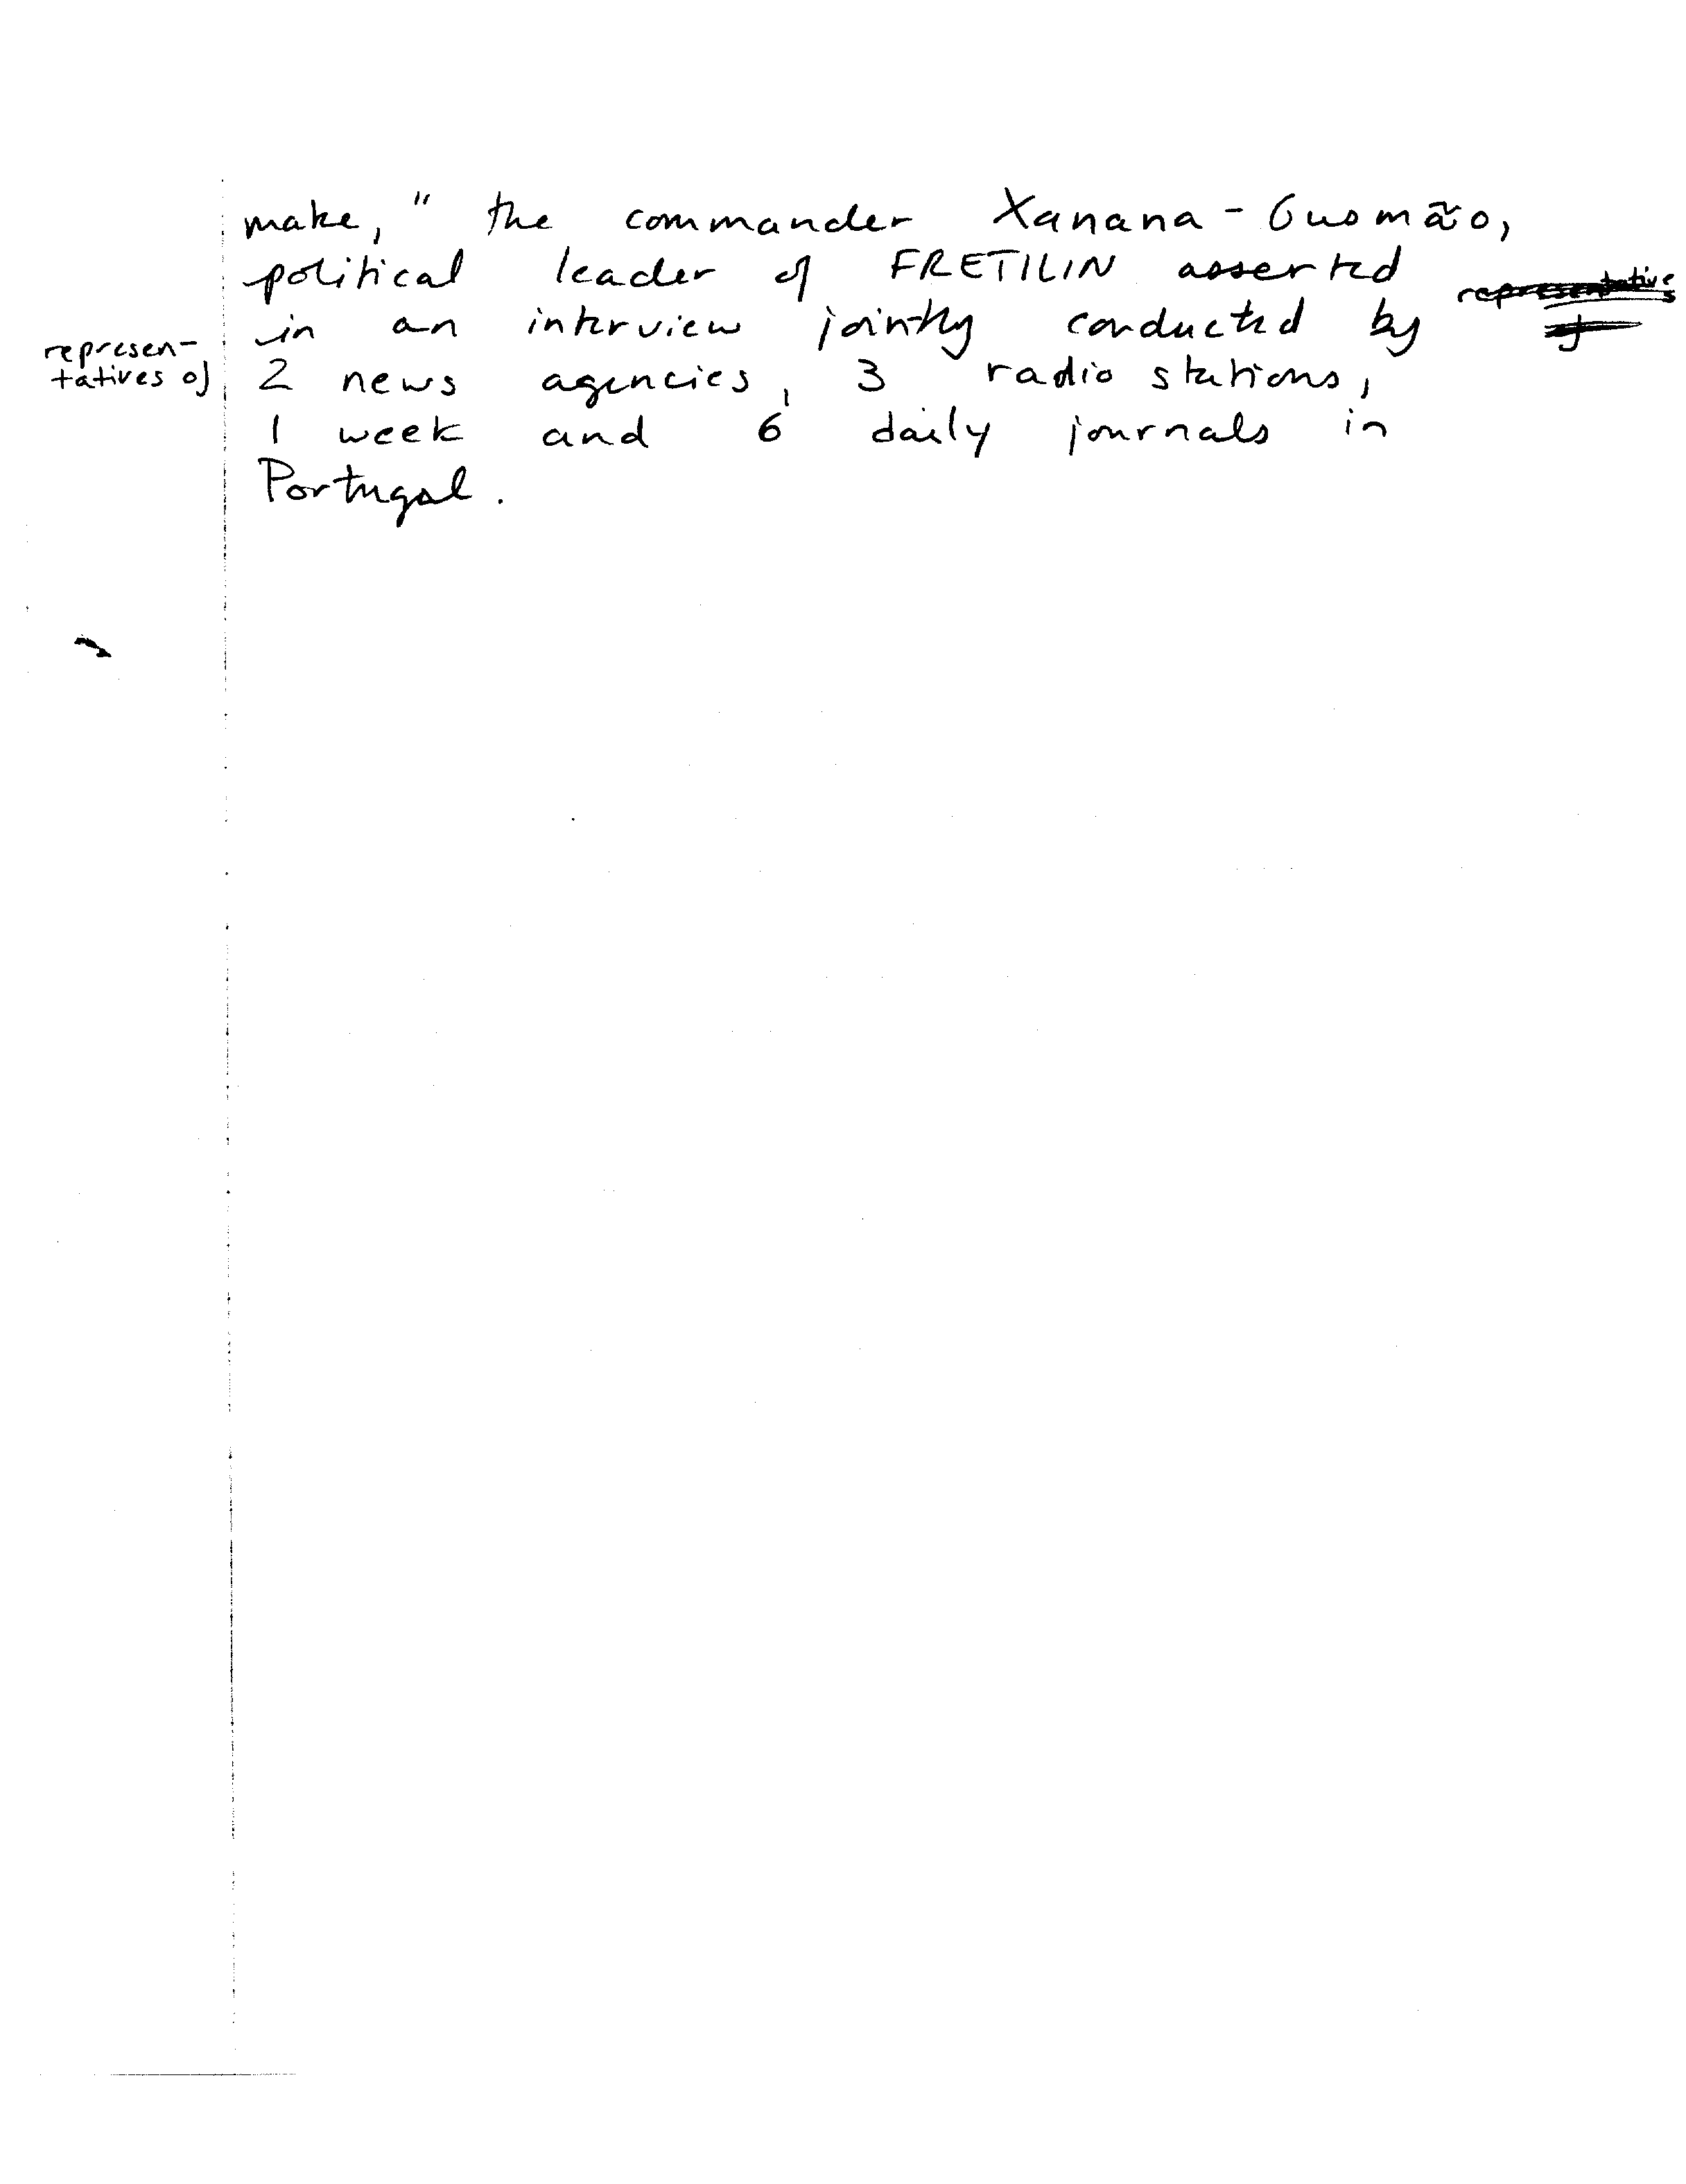 make," the commander Xanana-Gusmão,
political leader of FRETILIN asserted
representatives
in an interview jointly conducted by of
represen-
tatives of
2 news agencies, 3 radio stations,
1 week and 6 daily journals in
Portugal.